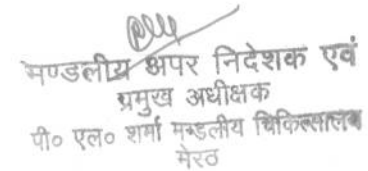 मण्डलीय अपर निदेशक एवं
प्रमुख अधीक्षक
पी० एल० शर्मा मण्डलीय चिकित्सालय
मेरठ